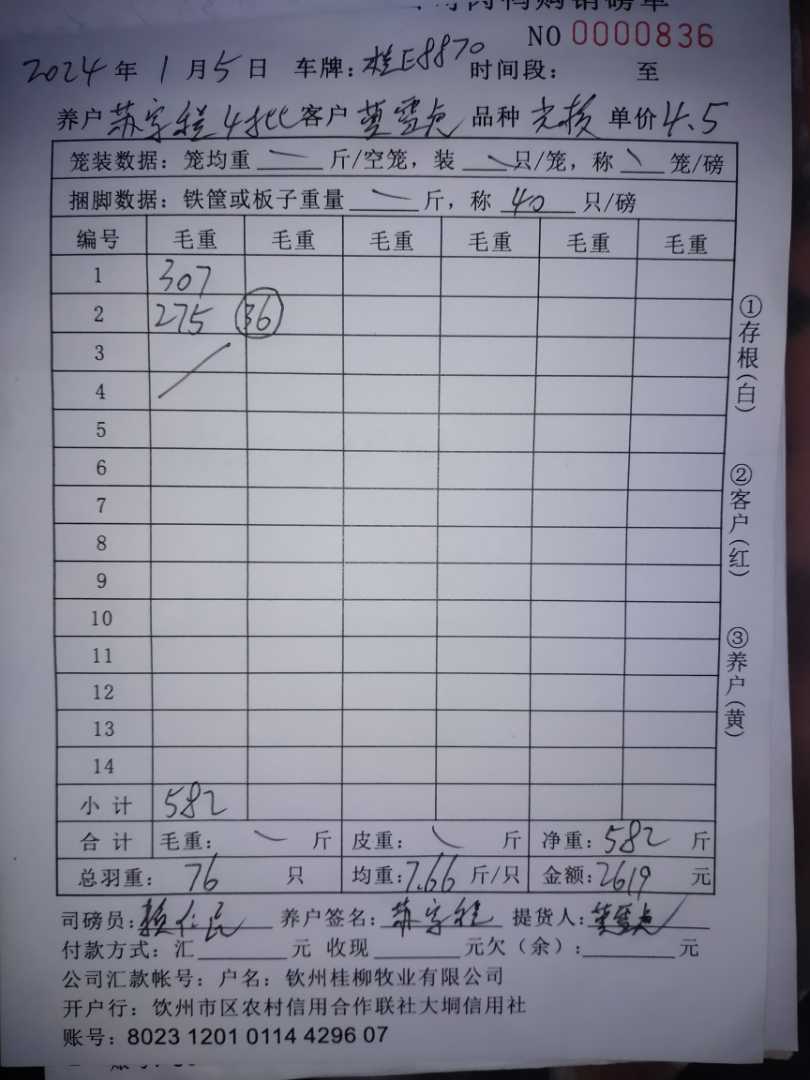 肉鸭购销磅单
NO 0000836
2024 年 1 月 5 日 车牌: 桂E8870 时间段: 至
养户 苏字程 4批 客户 莫雪贞 品种 光核 单价 4.5
笼装数据: 笼均重 斤/空笼, 装 只/笼, 称 笼/磅
捆脚数据: 铁筐或板子重量 斤, 称 40 只/磅
编号 毛重 毛重 毛重 毛重 毛重 毛重
1 307
2 275 36
3
4
5
6
7
8
9
10
11
12
13
14
小计 582
合计 毛重: 斤 皮重: 斤 净重: 582 斤
总羽重: 76 只 均重: 7.66 斤/只 金额: 2619 元
司磅员: 赖仁民 养户签名: 苏字程 提货人: 莫雪贞
付款方式: 汇 元 收现 元欠(余): 元
公司汇款帐号: 户名: 钦州桂柳牧业有限公司
开户行: 钦州市区农村信用合作联社大垌信用社
账号: 8023 1201 0114 4296 07
①存根(白)
②客户(红)
③养户(黄)